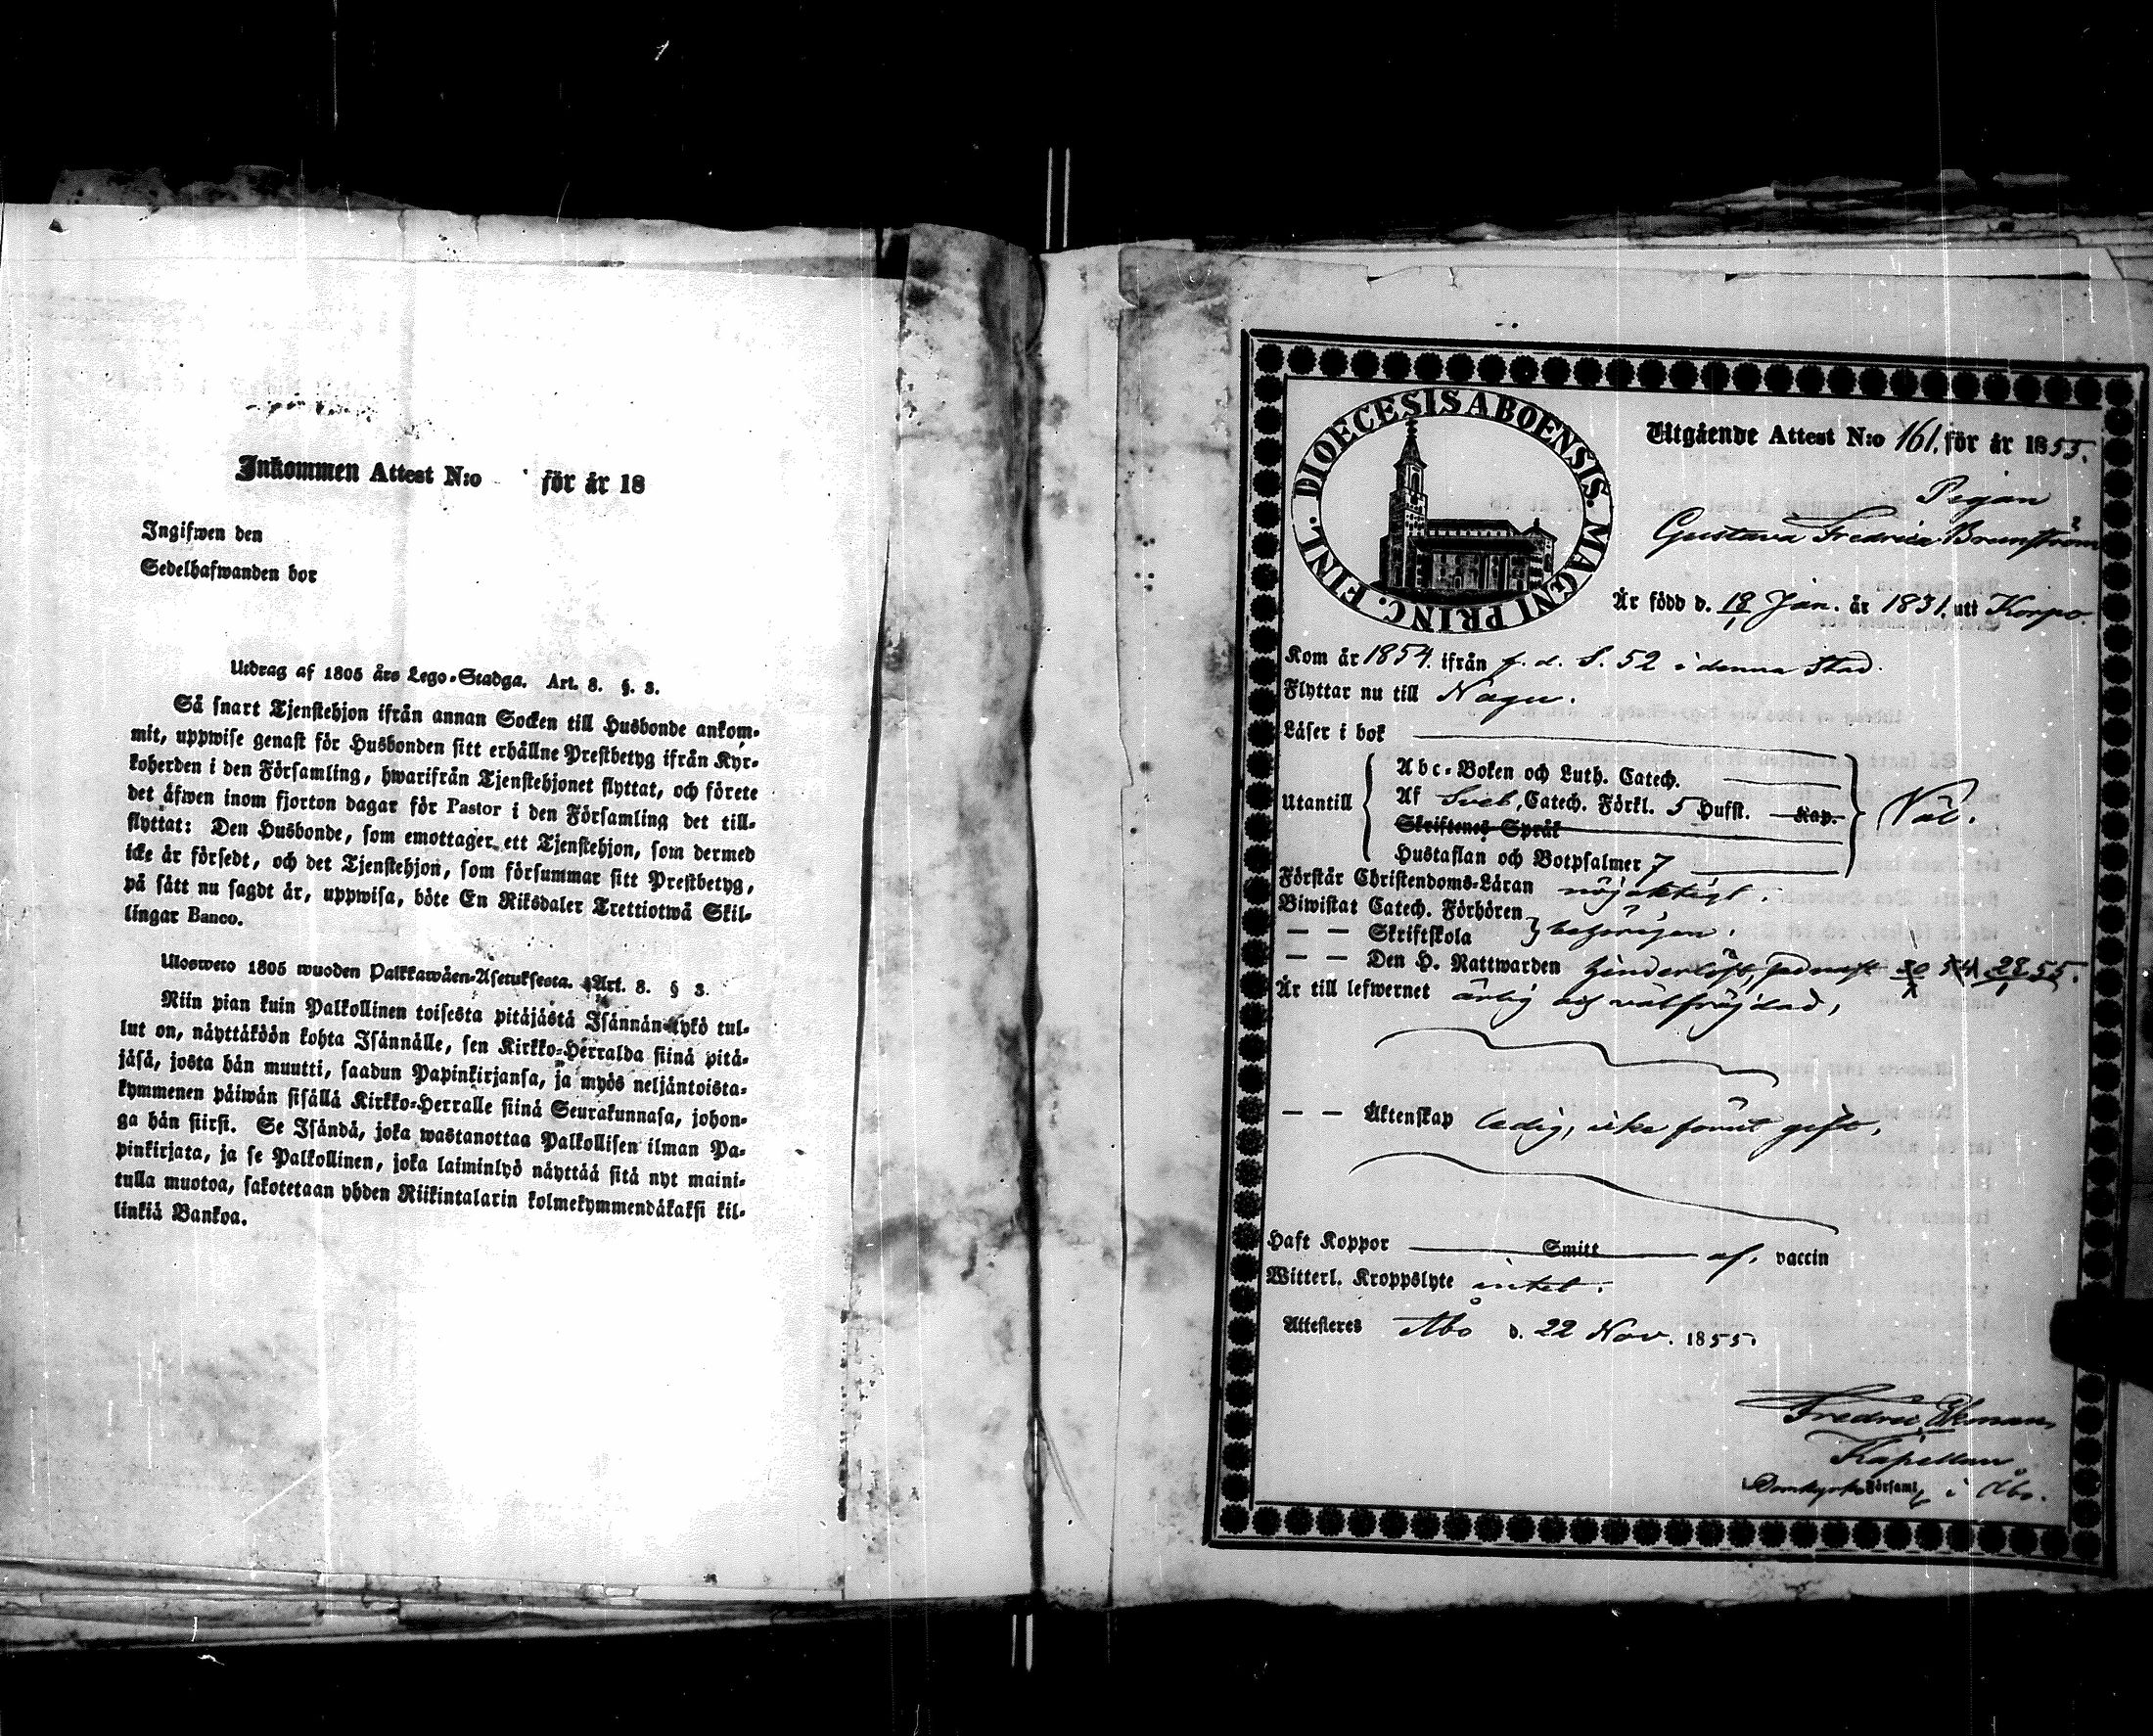 Inkommen Attest N:o för år 18
Ingifwen den
Sedelhafwanden bor
Utdrag af 1805 års Lego-Stadga. Art. 8. §. 3.
Så snart Tjenstehjon ifrån annan Socken till Husbonde ankom-
mit, uppwise genast för Husbonden sitt erhållne Prestbetyg ifrån Kyr-
koherden i den Församling, hwarifrån Tjenstehjonet flyttat, och förete
det äfwen inom fjorton dagar för Pastor i den Församling det till-
flyttat: Den Husbonde, som emottager ett Tjenstehjon, som dermed
icke är försedt, och det Tjenstehjon, som försummar sitt Prestbetyg,
på sätt nu sagdt är, uppwisa, böte En Riksdaler Trettiotwå Skil-
lingar Banco.
Ulosweto 1805 wuoden Palkkawäen-Asetuksesta. Art. 8. § 3.
Niin pian kuin Palkollinen toisesta pitäjästä Isännän tykö tul-
lut on, näyttäköön kohta Isännälle, sen Kirkko-Herralda siinä pitä-
jäsä, josta hän muutti, saadun Papinkirjansa, ja myös neljäntoista-
kymmenen päiwän sisällä Kirkko-Herralle siinä Seurakunnasa, johon-
ga hän siirsi. Se Isändä, joka wastanottaa Palkollisen ilman Pa-
pinkirjata, ja se Palkollinen, joka laiminlyö näyttää sitä nyt maini-
tulla muotoa, sakotetaan yhden Riikintalarin kolmekymmendäkaksi kil-
linkiä Bankoa.
DIOECESIS ABOENSIS. MAGNI PRINC. FINL.
Utgående Attest N:o 161. för år 1855.
Pigan
Gustava Fredrica Brunström
Är född d. 18/1 Jan. år 1831. uti Korpo.
Kom år 1854. ifrån f. d. S. 52 i denna Stad.
Flyttar nu till Nagu.
Läser i bok
Abc-Boken och Luth. Catech.
Utantill Af Sveb. Catech. Förkl. 5 Hufst. Kap. Väl.
Skriftenes Språk
Hustaflan och Botpsalmer 7
Förstår Christendoms-Läran nöjaktigt.
Biwistat Catech. Förhören
— — Skriftskola behörigen.
— — Den H. Nattwarden hinderlöst, sednast 54 28/1 55.
Är till lefwernet ärlig och välfrejdad,
— — Äktenskap ledig, icke förut gift,
Haft Koppor Smitt af. vaccin
Witterl. Kroppslyte intet.
Attesteres Åbo d. 22 Nov. 1855.
Fredric Ekman,
Kapellan
Domkyrko Församl. i Åbo.